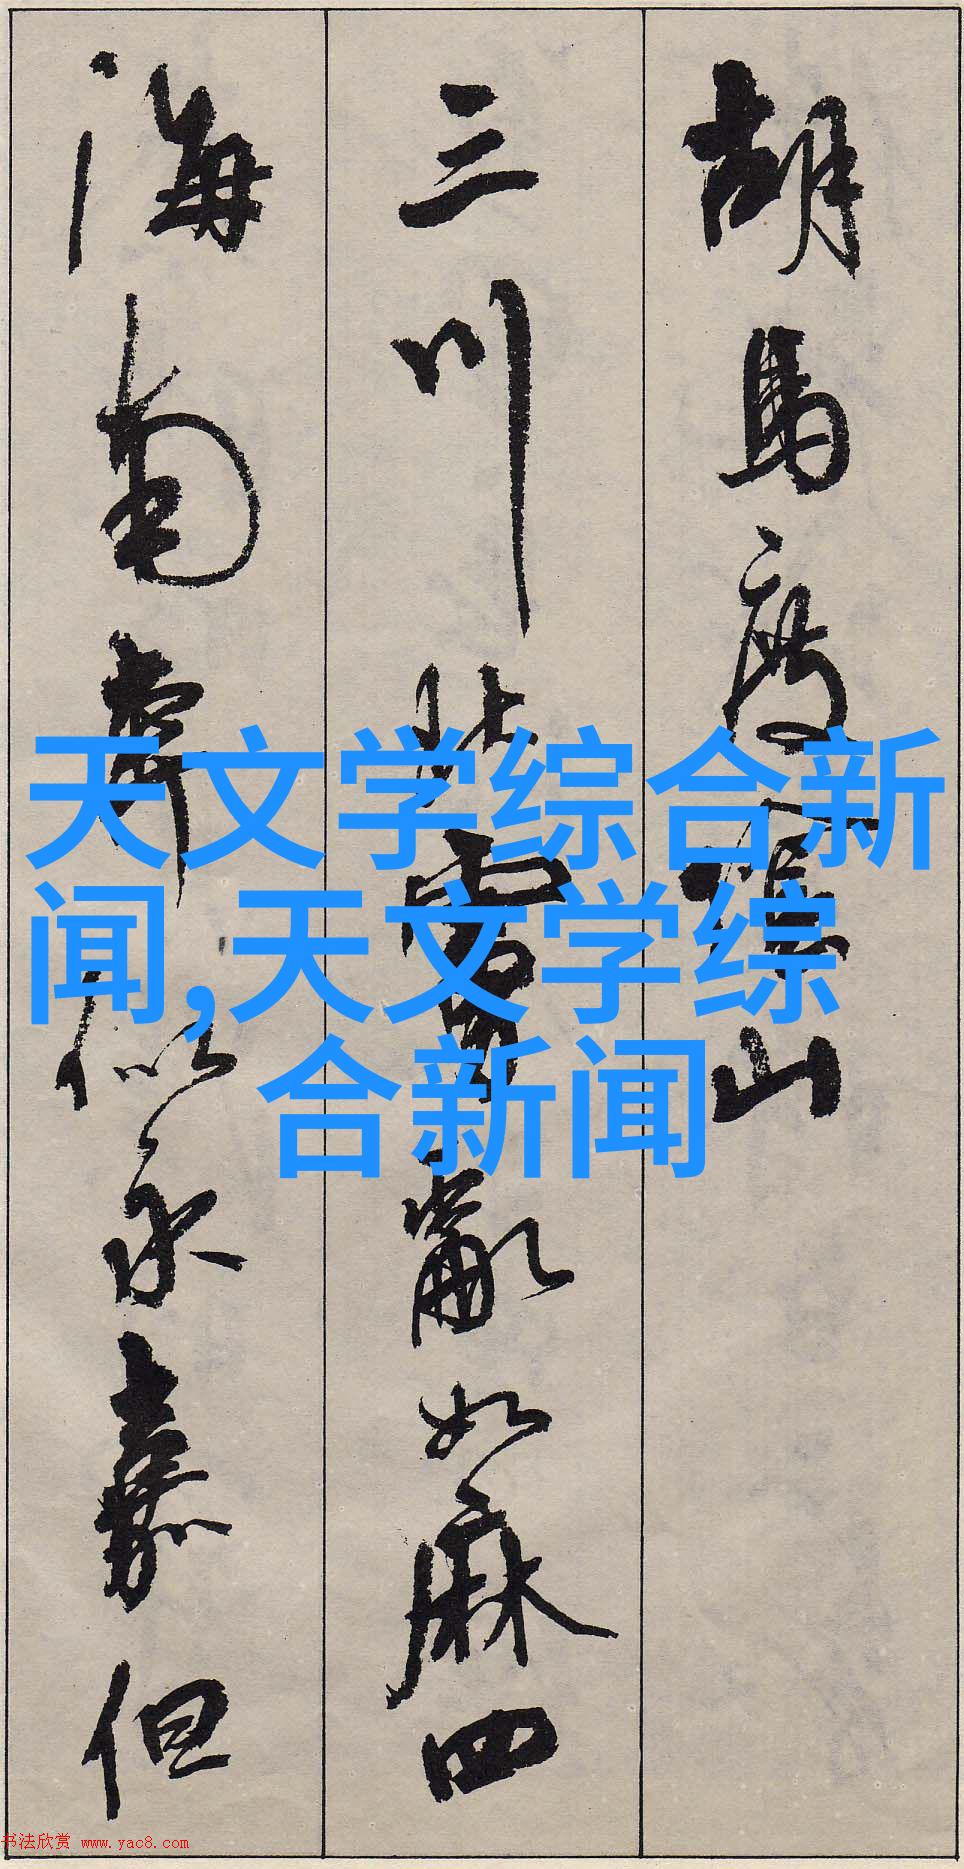 胡馬度陰山
三川北虜亂如麻四
海南奔似永嘉但
天文学综合新
闻,天文学综
合新闻
书法欣赏 www.yac8.com